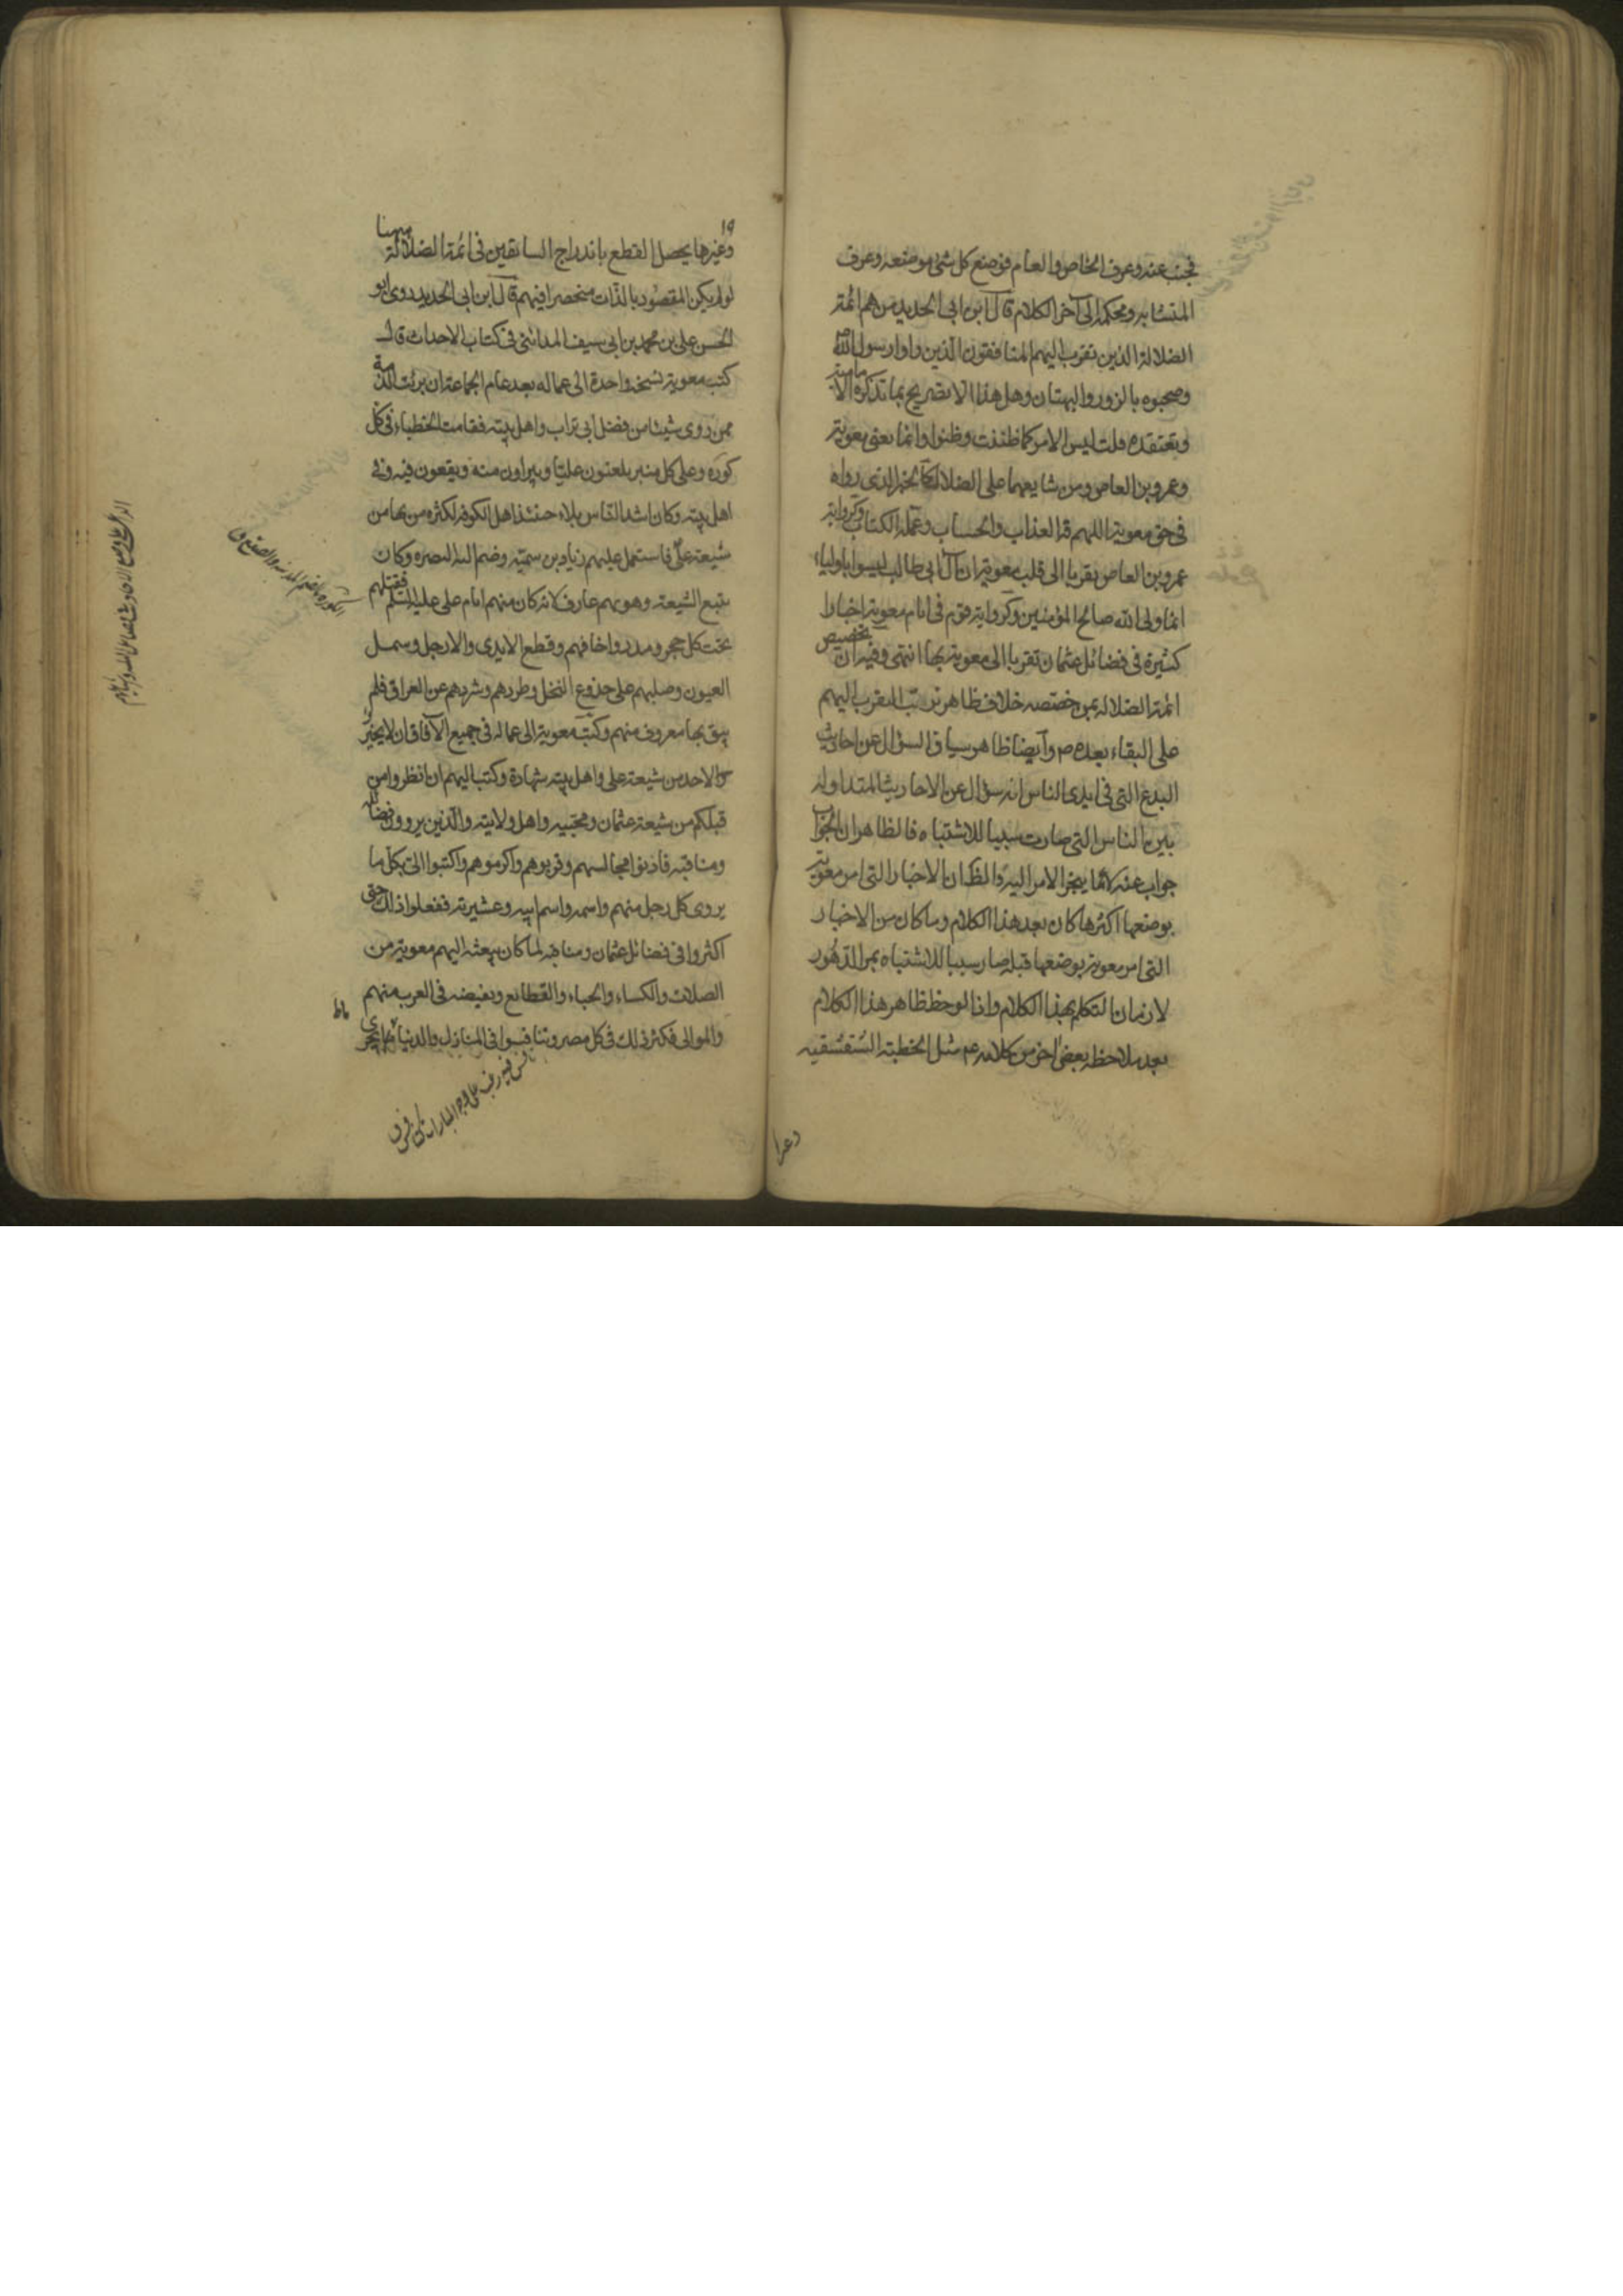 فجنب عنه وعرف الخاص والعام فوضع كل شئ موضعه وعرف
المتشابه ومحكمه الى آخر الكلام قال ابن ابى الحديد من هم ائمة
الضلالة الذين تقرب اليهم المنافقون الذين راوا رسول الله ص
وصحبوه بالزور والبهتان وهل هذا الا تصريح بما تذكره الامامية
وتعتقده قلت ليس الامر كما ظننت وظنوا وانما يعنى معوية
وعمرو بن العاص ومن شايعهما على الضلالة كالخبر الذى رواه
فى حق معوية اللهم قه العذاب والحساب وعلمه الكتاب وكرواية
عمرو بن العاص تقربا الى قلب معوية ان آل ابى طالب ليسوا باولياء
انما وليى الله وصالح المؤمنين وكرواية قوم فى ايام معوية اخبارا
كثيرة فى فضائل عثمان تقربا الى معوية بها انتهى وفيه ان تخصيص
ائمة الضلالة بمن خصصه خلاف ظاهر ترتب التقرب اليهم
على البقاء بعده ص وايضا ظاهر سياق السؤال عن احاديث
البدع التى فى ايدى الناس انه سؤال عن الاحاديث المتداوله
بين الناس التى صارت سببا للاشتباه فالظاهر ان الجواب
جواب عنه لا عما ينجر الامر اليه والظ ان الاخبار التى امر معوية
بوضعها اكثرها كان بعد هذا الكلام وما كان من الاخبار
التى امر معوية بوضعها قبله صار سببا للاشتباه بمر الدهور
لا زمان التكلم بهذا الكلام واذا لوحظ ظاهر هذا الكلام
بعد ملاحظة بعض اخر من كلامه عم مثل الخطبة الشقشقيه
وغيرها
١٩
وغيرها يحصل القطع باندراج السابقين فى ائمة الضلالة ههنا
لو لم يكن المقصود بالذات منحصرا فيهم قال ابن ابى الحديد روى ابو
الحسن على بن محمد بن ابى سيف المدائنى فى كتاب الاحداث قال
كتب معوية نسخة واحدة الى عماله بعد عام الجماعة ان برئت الذمة
ممن روى شيئا من فضل ابى تراب واهل بيته فقامت الخطباء فى كل
كورة وعلى كل منبر يلعنون عليا ويبراون منه ويقعون فيه وفى
اهل بيته وكان اشد الناس بلاء حينئذ اهل الكوفة لكثرة من بها من
شيعة على فاستعمل عليهم زياد بن سمية وضم اليه البصره وكان
يتبع الشيعة وهو بهم عارف لانه كان منهم ايام على عليه السلم فقتلهم
تحت كل حجر ومدر واخافهم وقطع الايدى والارجل وسمل
العيون وصلبهم على جذوع النخل وطردهم وشردهم عن العراق فلم
يبق بها معروف منهم وكتب معوية الى عماله فى جميع الآفاق ان لا يجيزوا
لاحد من شيعة على واهل بيته شهادة وكتب اليهم ان انظروا من
قبلكم من شيعة عثمان ومحبيه واهل ولايته والذين يروون فضائله
ومناقبه فادنوا مجالسهم وقربوهم واكرموهم واكتبوا الى بكل ما
يروى كل رجل منهم واسمه واسم ابيه وعشيرته ففعلوا ذلك حتى
اكثروا فى فضائل عثمان ومناقبه لما كان يبعثه اليهم معوية من
الصلات والكساء والحباء والقطايع ويفيضه فى العرب منهم
والموالى فكثر ذلك فى كل مصر وتنافسوا فى المنازل والدنيا
الكورة بالضم المدينة والصقع ق